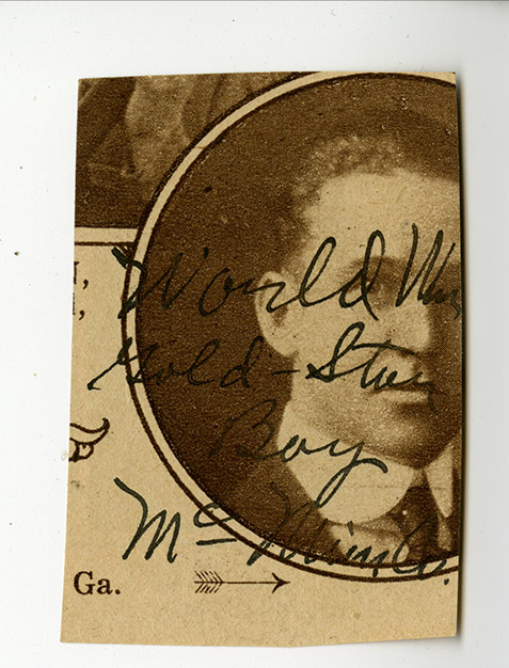 World War
Gold-Star
Boy
Mc Minn Co.
Ga.